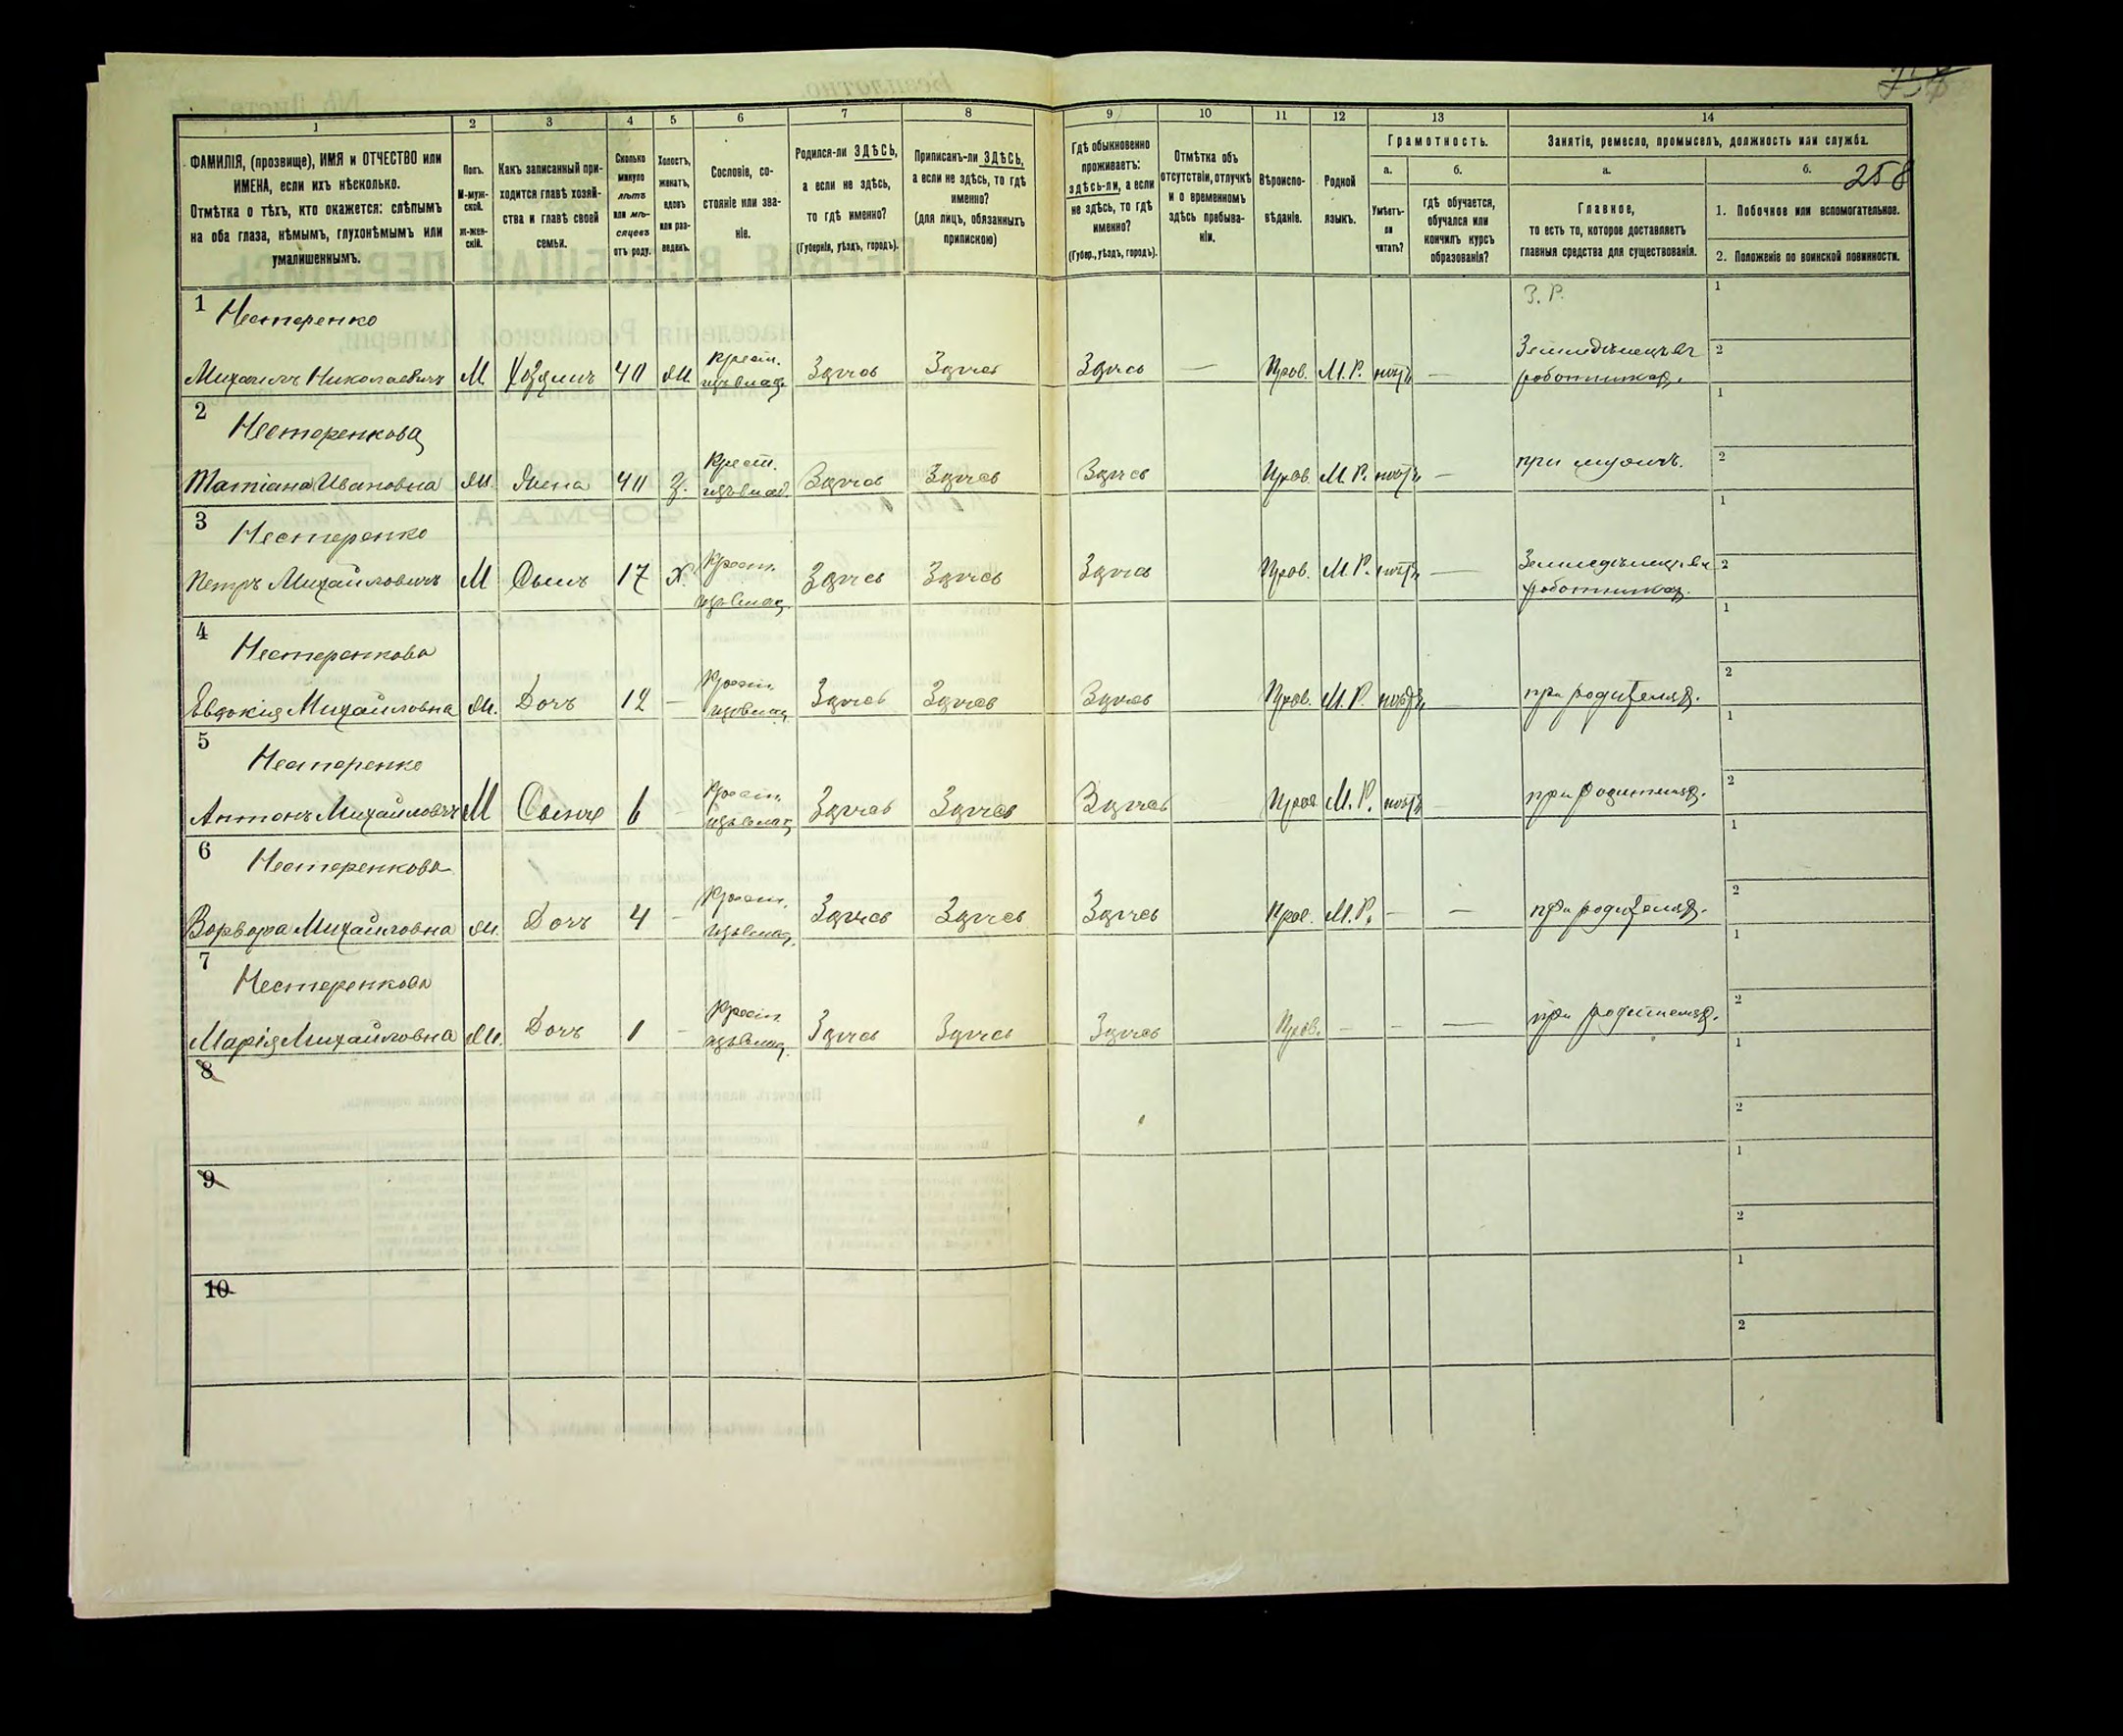 258
1 2 3 4 5 6 7 8 9 10 11 12 13 14
ФАМИЛІЯ, (прозвище), ИМЯ и ОТЧЕСТВО или
ИМЕНА, если ихъ нѣсколько.
Отмѣтка о тѣхъ, кто окажется: слѣпымъ
на оба глаза, нѣмымъ, глухонѣмымъ или
умалишеннымъ.
Полъ.
М-муж-
ской.
ж-жен-
скій.
Какъ записанный при-
ходится главѣ хозяй-
ства и главѣ своей
семьи.
Сколько
минуло
лѣтъ
или мѣ-
сяцевъ
отъ роду.
Холостъ,
женатъ,
вдовъ
или раз-
веденъ.
Сословіе, со-
стояніе или зва-
ніе.
Родился-ли ЗДѢСЬ,
а если не здѣсь,
то гдѣ именно?
(Губернія, уѣздъ, городъ).
Приписанъ-ли ЗДѢСЬ,
а если не здѣсь, то гдѣ
именно?
(для лицъ, обязанныхъ
припискою)
Гдѣ обыкновенно
проживаетъ:
здѣсь-ли, а если
не здѣсь, то гдѣ
именно?
(Губер., уѣздъ, городъ).
Отмѣтка объ
отсутствіи, отлучкѣ
и о временномъ
здѣсь пребыва-
ніи.
Вѣроиспо-
вѣданіе.
Родной
языкъ.
Грамотность.
а.
Умѣетъ-
ли
читать?
б.
гдѣ обучается,
обучался или
кончилъ курсъ
образованія?
Занятіе, ремесло, промыселъ, должность или служба.
а.
Главное,
то есть то, которое доставляетъ
главныя средства для существованія.
б.
1. Побочное или вспомогательное.
2. Положеніе по воинской повинности.
1 Нестеренко З. Р. 1
Михаилъ Николаевичъ М Хозяинъ 40 ж. Крест. Здѣсь Здѣсь Здѣсь — Прав. М. Р. нѣтъ — 2
2 Нестеренкова 1
Татіана Ивановна ж. Жена 40 З. Крест. Здѣсь Здѣсь Здѣсь Прав. М. Р. нѣтъ — при мужѣ. 2
3 Нестеренко 1
Петръ Михайловичъ М Сынъ 17 Х. Крест. Здѣсь Здѣсь Здѣсь Прав. М. Р. нѣтъ — 2
4 Нестеренкова 1
Евдокія Михайловна ж. Дочь 12 — Крест. Здѣсь Здѣсь Здѣсь Прав. М. Р. нѣтъ при родителяхъ. 2
5 Нестеренко 1
Антонъ Михайловичъ М Сынъ 6 — Крест. Здѣсь Здѣсь Здѣсь Прав. М. Р. нѣтъ при родителяхъ. 2
6 Нестеренкова 1
Варвара Михайловна ж. Дочь 4 — Крест. Здѣсь Здѣсь Здѣсь Прав. М. Р. — — при родителяхъ. 2
7 Нестеренкова 1
Марія Михайловна ж. Дочь 1 — Крест. Здѣсь Здѣсь Здѣсь Прав. — — — при родителяхъ. 2
8 1
2
9 1
2
10 1
2